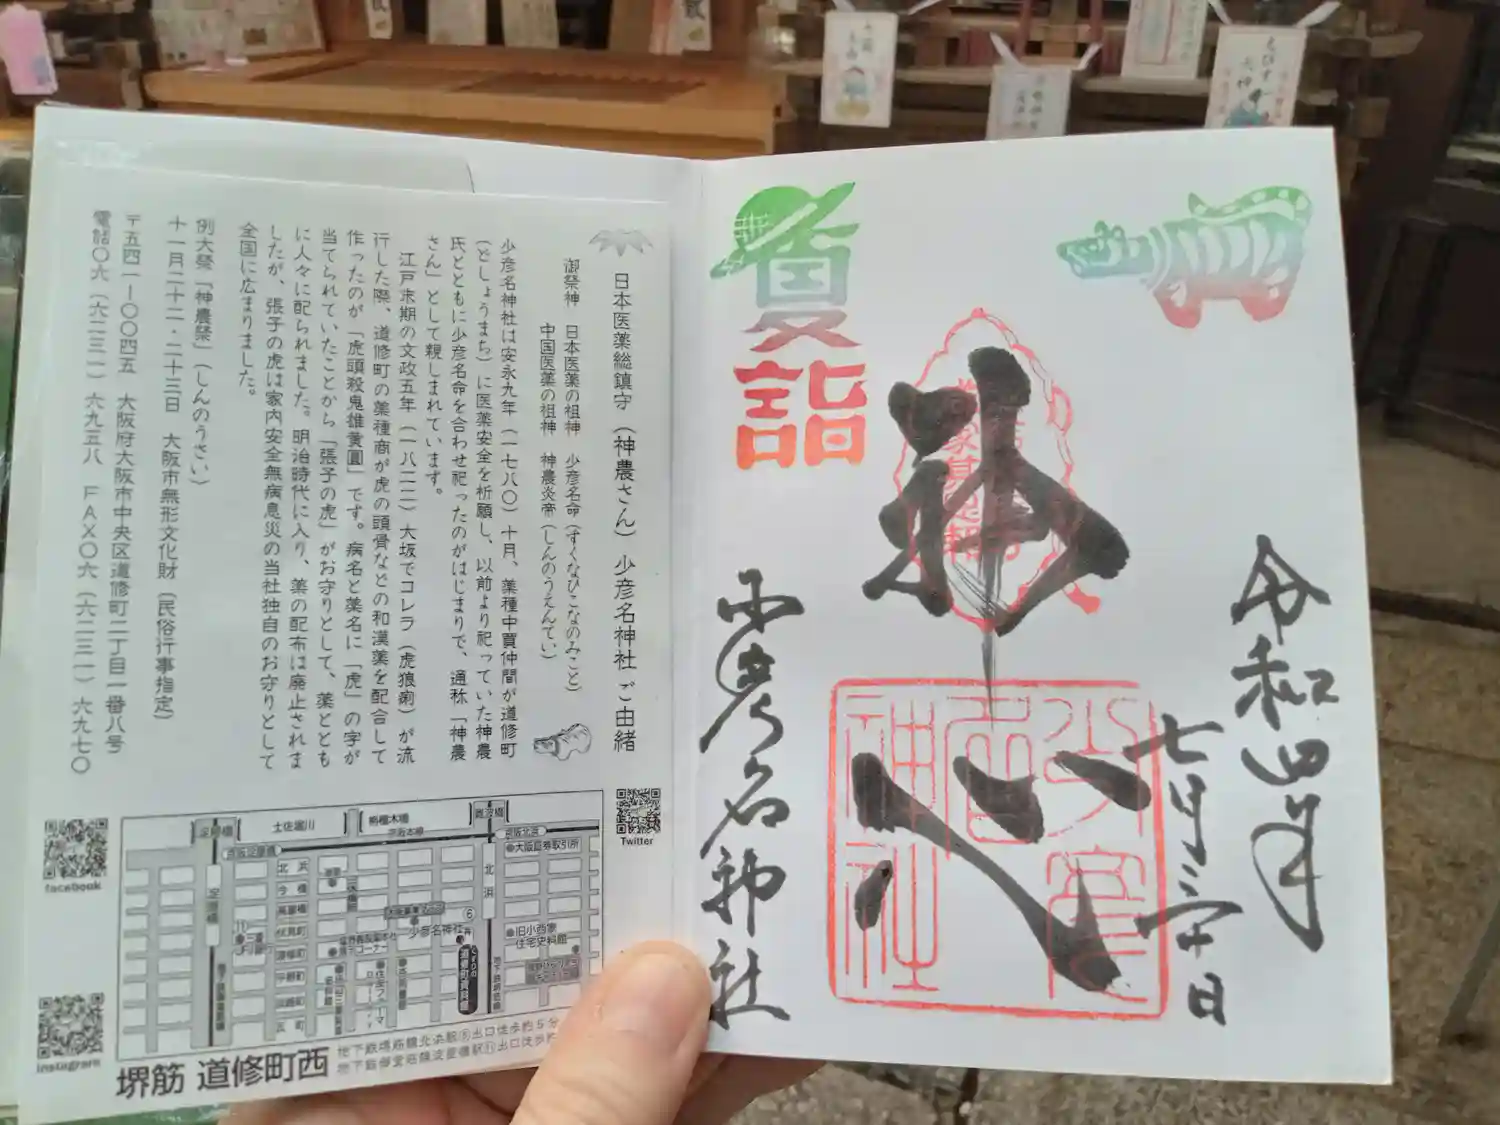 夏詣
令和四年
七月三十日
神心
少彦名神社
少彦名神社
日本医薬総鎮守（神農さん）少彦名神社 ご由緒
御祭神 日本医薬の祖神 少彦名命（すくなひこなのみこと）
中国医薬の祖神 神農炎帝（しんのうえんてい）
少彦名神社は安永九年（一七八〇）十月、薬種中買仲間が道修町
（どしょうまち）に医薬安全を祈願し、以前より祀っていた神農
氏とともに少彦名命を合わせ祀ったのがはじまりで、通称「神農
さん」として親しまれています。
江戸末期の文政五年（一八二二）大坂でコレラ（虎狼痢）が流
行した際、道修町の薬種商が虎の頭骨などの和漢薬を配合して
作ったのが「虎頭殺鬼雄黄圓」です。病名と薬名に「虎」の字が
当てられていたことから「張子の虎」がお守りとして、薬ととも
に人々に配られました。明治時代に入り、薬の配布は廃止されま
したが、張子の虎は家内安全無病息災の当社独自のお守りとして
全国に広まりました。
例大祭「神農祭」（しんのうさい）
十一月二十二・二十三日 大阪市無形文化財（民俗行事指定）
〒五四一ー〇〇四五 大阪府大阪市中央区道修町二丁目一番八号
電話〇六（六二三一）六九五八 FAX〇六（六二三一）六九七〇
Twitter
facebook
instagram
淀屋橋
土佐堀川
栴檀木橋
難波橋
京阪本線
京阪北浜
京阪淀屋橋
大阪証券取引所
北浜
今橋
高麗橋
伏見町
道修町
平野町
淡路町
瓦町
北浜
少彦名神社
⑥
⑪
旧小西家
住宅史料館
堺筋 道修町西
地下鉄堺筋線北浜駅⑥出口徒歩約5分
地下鉄御堂筋線淀屋橋駅⑪出口徒歩約